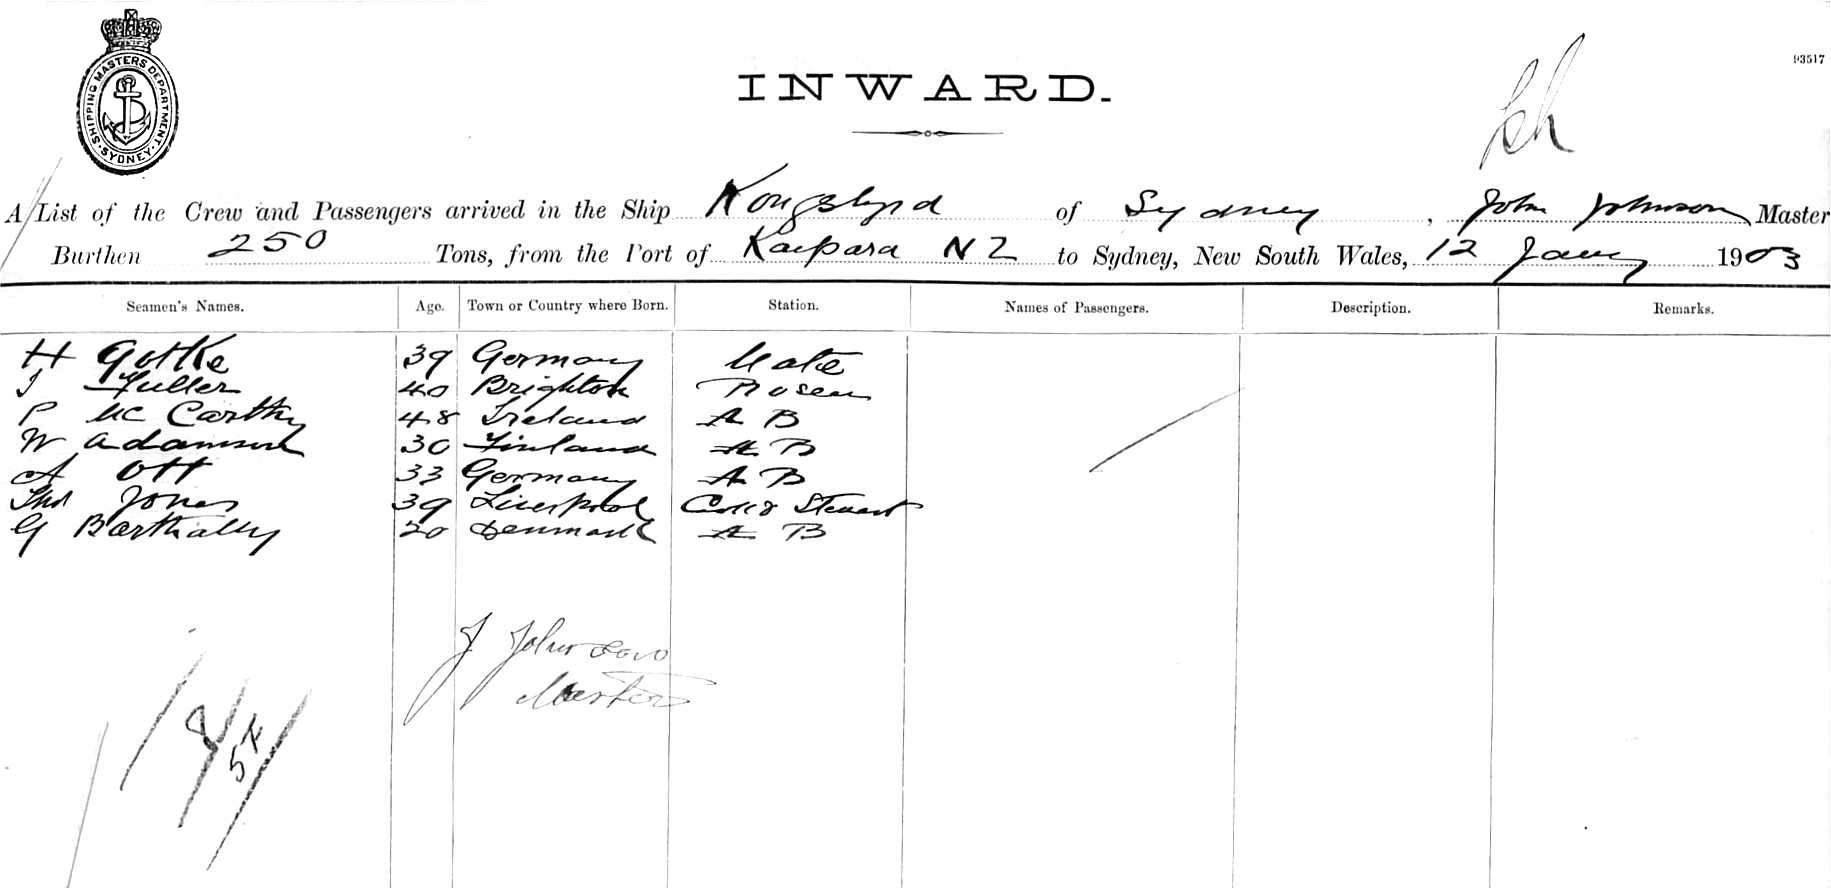 SHIPPING MASTERS DEPARTMENT
SYDNEY
93517
INWARD.
A List of the Crew and Passengers arrived in the Ship Kongsbyrd of Sydney, John Johnson Master
Burthen 250 Tons, from the Port of Kaipara NZ to Sydney, New South Wales, 12 Jany 1903
Seamen's Names. Age. Town or Country where Born. Station. Names of Passengers. Description. Remarks.
H Gotke 39 Germany Mate
J Fuller 40 Brighton Bosen
P McCarthy 48 Ireland A B
W Adamson 30 Finland A B
A Ott 33 Germany A B
Thos Jones 39 Liverpool Cook & Steward
G Barthally 20 Denmark A B
J Johnson
Master